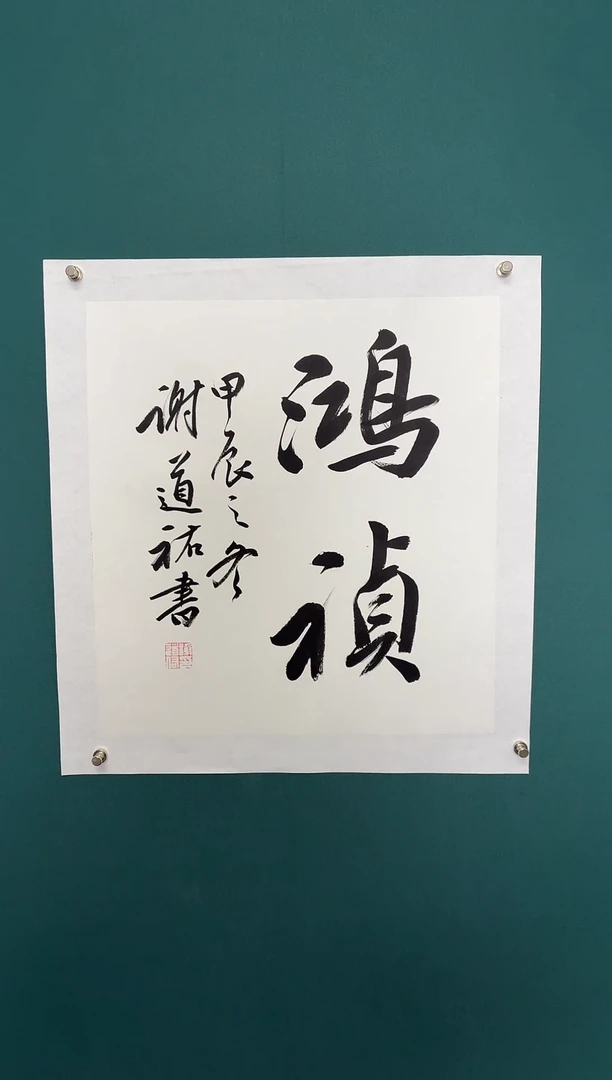 鴻禎
甲辰之冬
谢道祐書